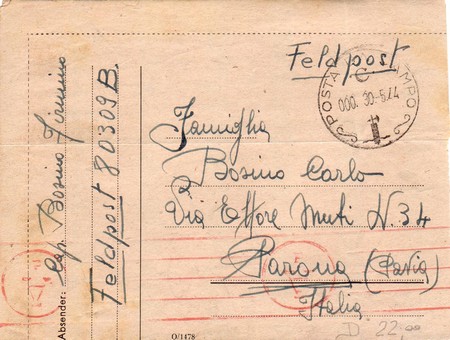 Feldpost
POSTA C MPO
000. 30-5.44
Famiglia
Bosino Carlo
Via Ettore Muti N. 34
Parona (Pavia)
Italia
Absender: Cap. Bosino Firmino
Feldpost 80309 B.
O/1478
D 22,00